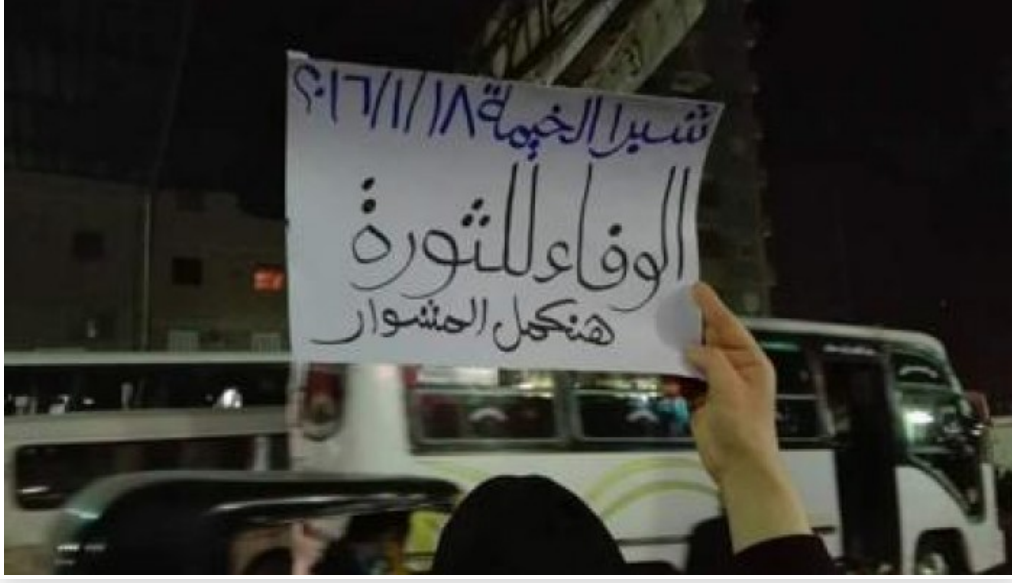 شبرا الخيمة ١٨/١/٢٠١٦
الوفاء للثورة
هنكمل المشوار